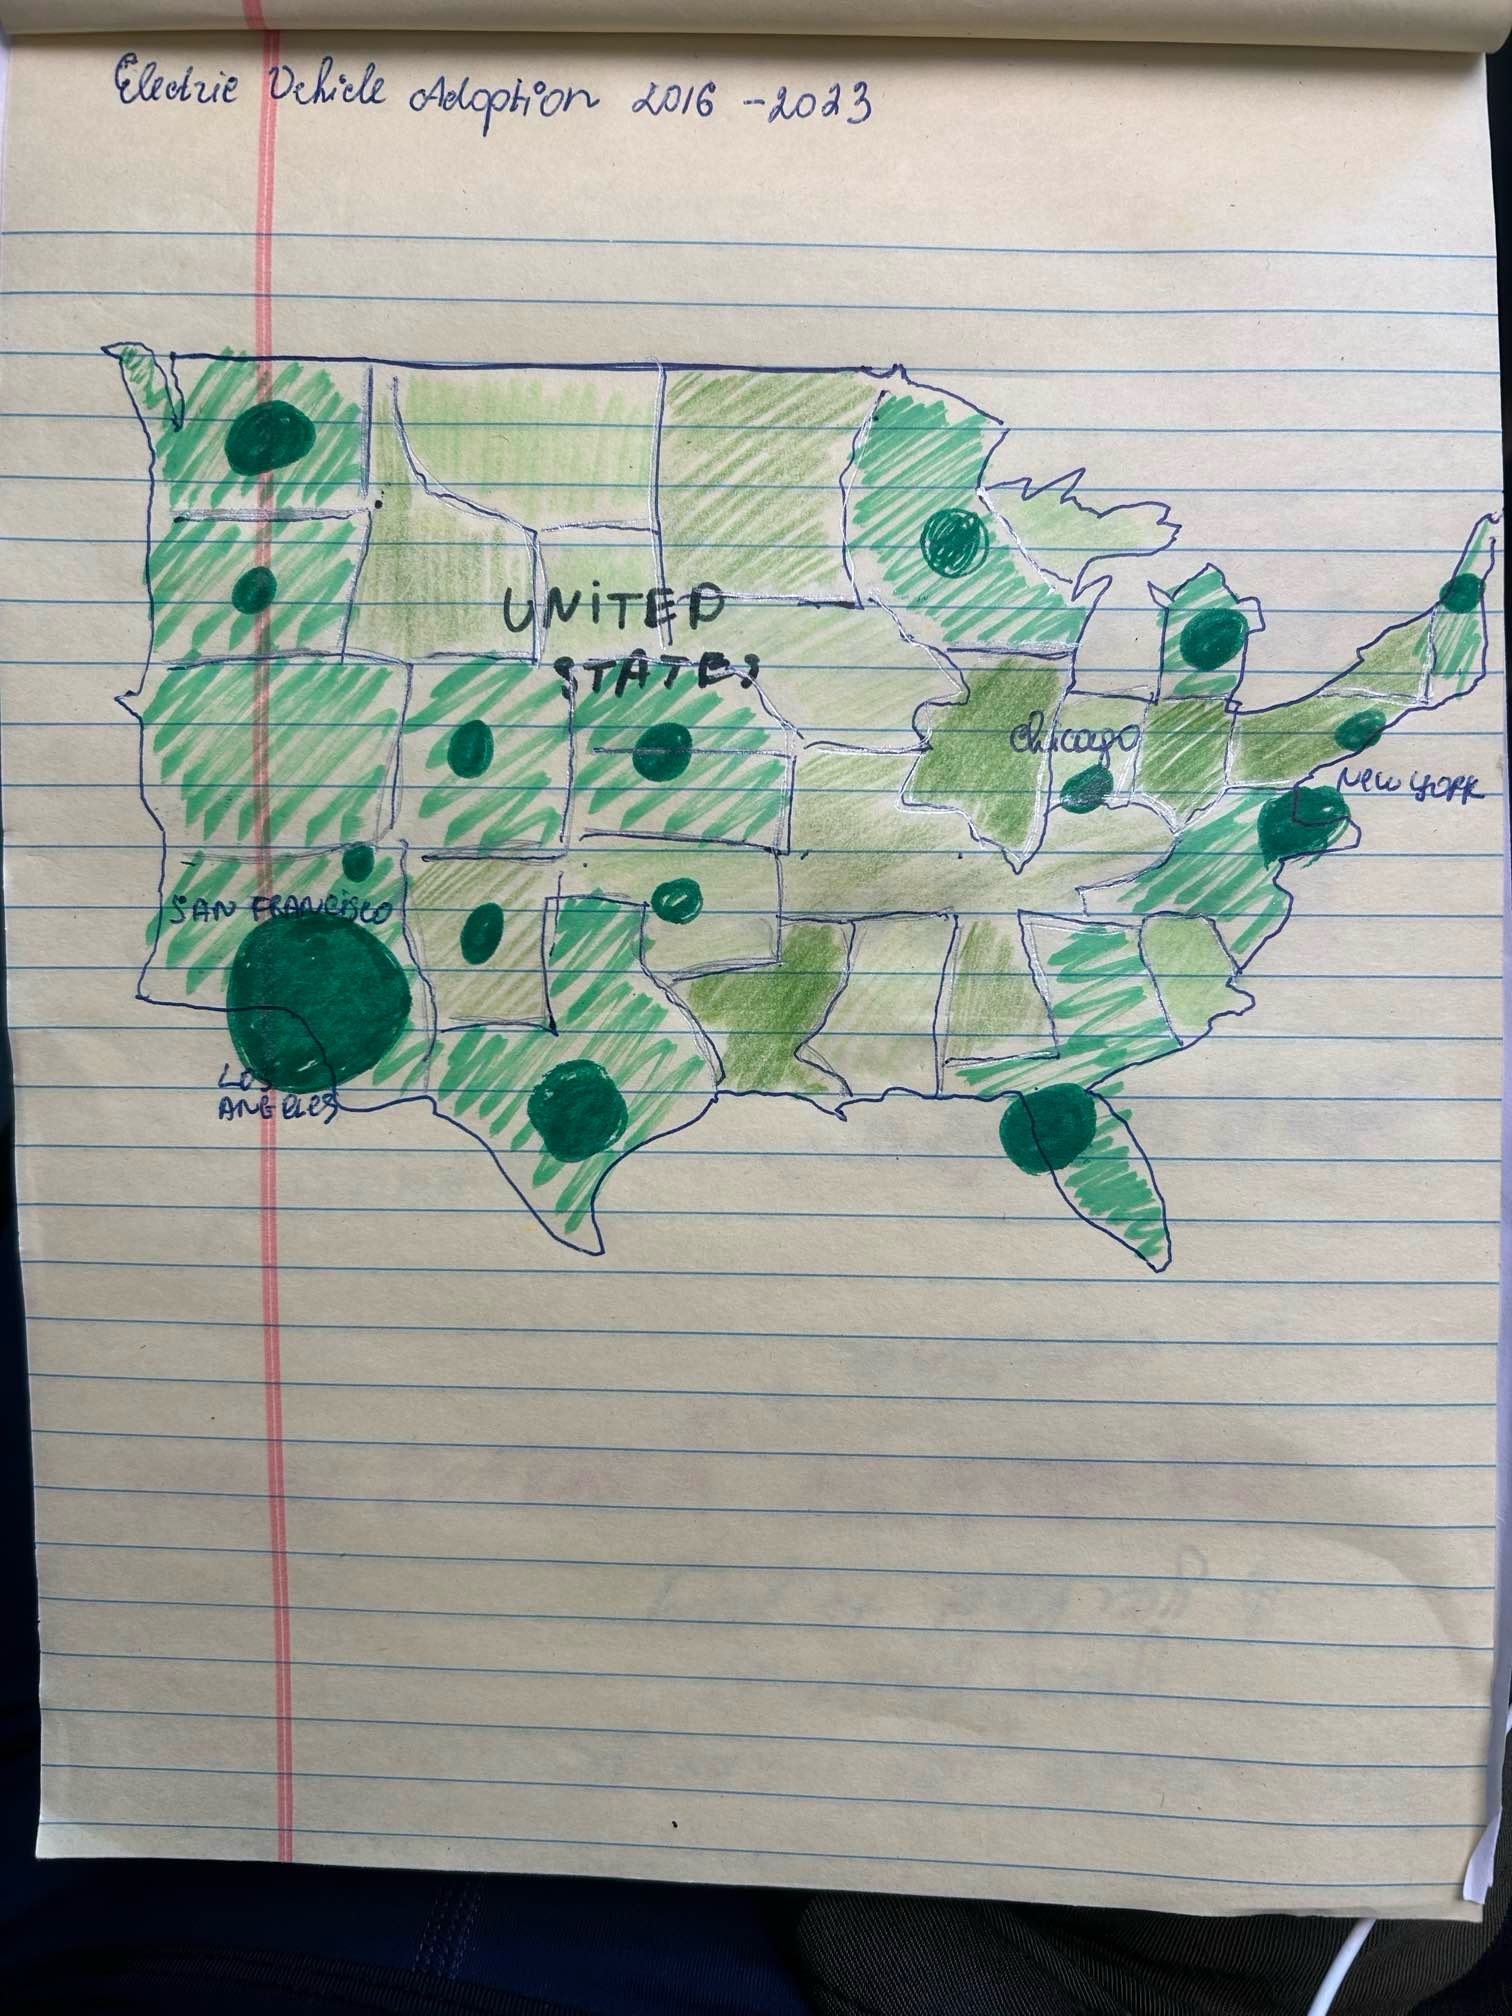 Electric Vehicle Adoption 2016 - 2023
UNITED
STATES
Chicago
NEW YORK
SAN FRANCISCO
LOS
ANGELES